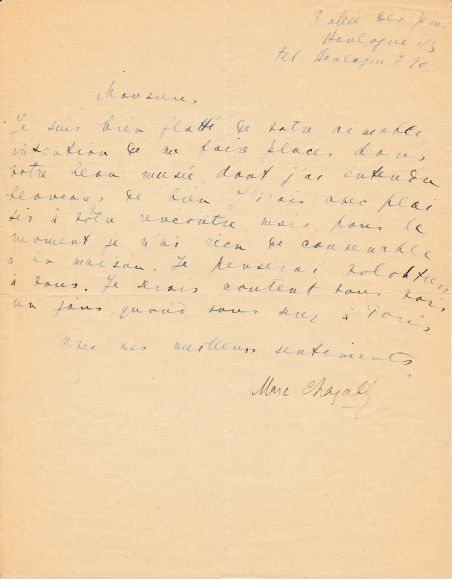 3 allée des Pins
Boulogne s/S
tel Boulogne 7-90
Monsieur,
Je suis bien flatté de votre aimable
intention de me faire placer dans
votre beau musée, dont j'ai entendu
beaucoup de bien. J'irais avec plai
sir à votre rencontre mais, pour le
moment je n'ai rien de convenable
à la maison. Je penserai volontiers
à vous. Je serais content vous voir
un jour quand vous serez à Paris
avec mes meilleurs sentiments.
Marc Chagall